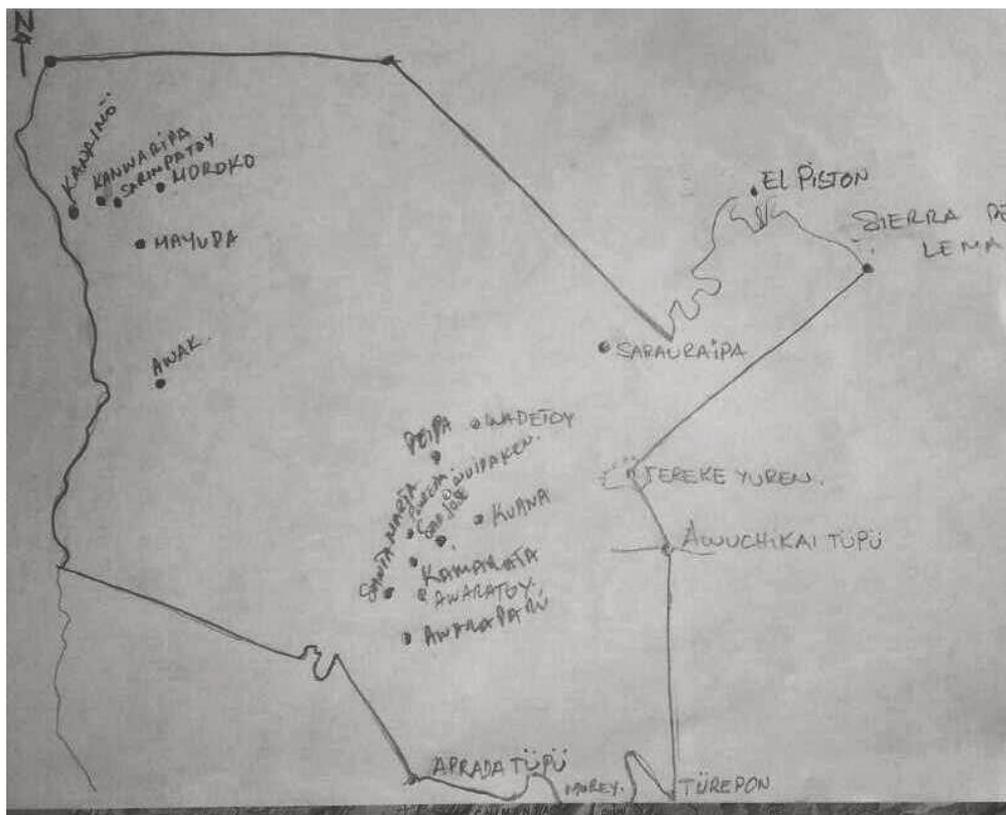 N
KANAIMÖ
KANWARIPA
SARIMPATOY
MOROKO
MAYUPA
AWAK.
EL PISTON
SIERRA DE
LEMA
SARAURAIPA
WADETOY
SANTA MARIA
SAN JOSE
KUANA
KAMARATA
AWARATOY.
AWARAPARÜ
TEREKE YUREN.
AWUCHIKAI TÜPÜ
APRADA TÜPÜ
MOREY.
TÜREPON